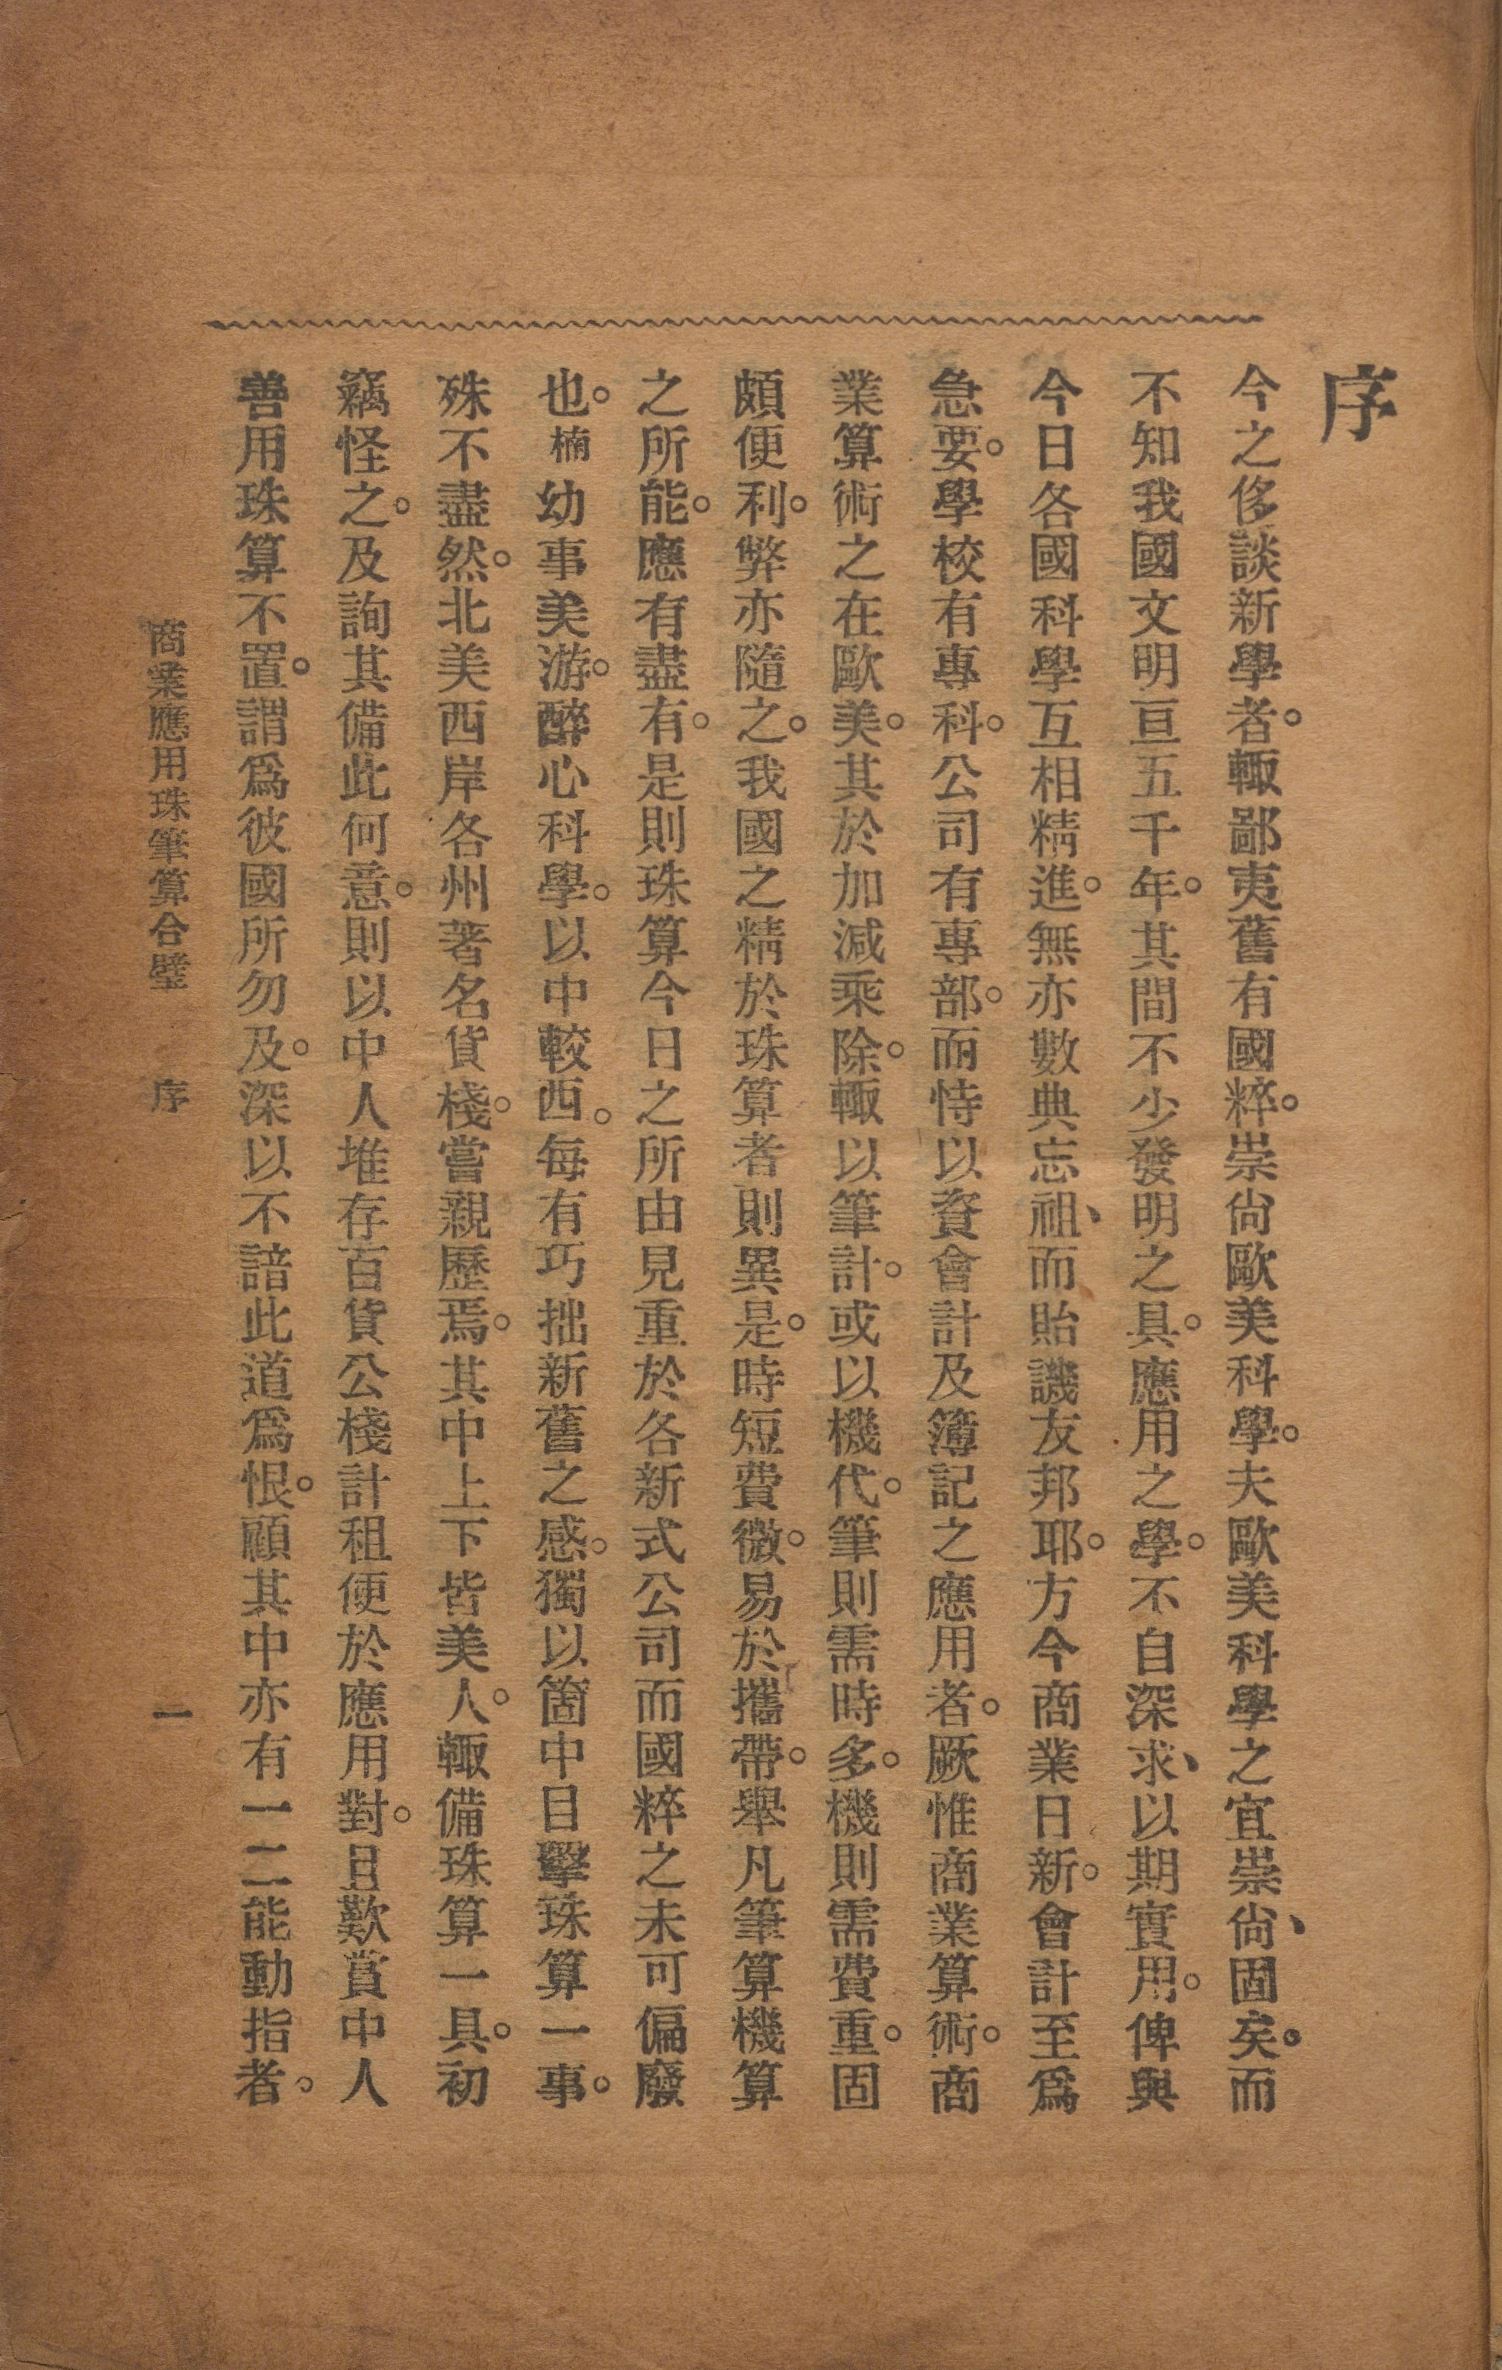 序
今之侈談新學者。輙鄙夷舊有國粹。崇尙歐美科學。夫歐美科學之宜崇尙、固矣。而
不知我國文明亘五千年。其間不少發明之具。應用之學。不自深求、以期實用。俾與
今日各國科學互相精進。無亦數典忘祖、而貽譏友邦耶。方今商業日新。會計至爲
急要。學校有專科。公司有專部。而恃以資會計及簿記之應用者。厥惟商業算術。商
業算術之在歐美。其於加減乘除。輙以筆計。或以機代。筆則需時多。機則需費重。固
頗便利。弊亦隨之。我國之精於珠算者則異是。時短費微。易於攜帶。舉凡筆算機算
之所能。應有盡有。是則珠算今日之所由見重於各新式公司而國粹之未可偏廢
也。楠幼事美游。醉心科學。以中較西。每有巧拙新舊之感。獨以箇中目擊珠算一事。
殊不盡然。北美美西岸各州著名貨棧。嘗親歷焉。其中上下皆美人。輙備珠算一具。初
竊怪之。及詢其備此何意。則以中人堆存百貨公棧計租便於應用對。且歎賞中人
善用珠算不置。謂爲彼國所勿及。深以不諳此道爲恨。顧其中亦有一二能動指者。
商業應用珠筆算合璧 序 一